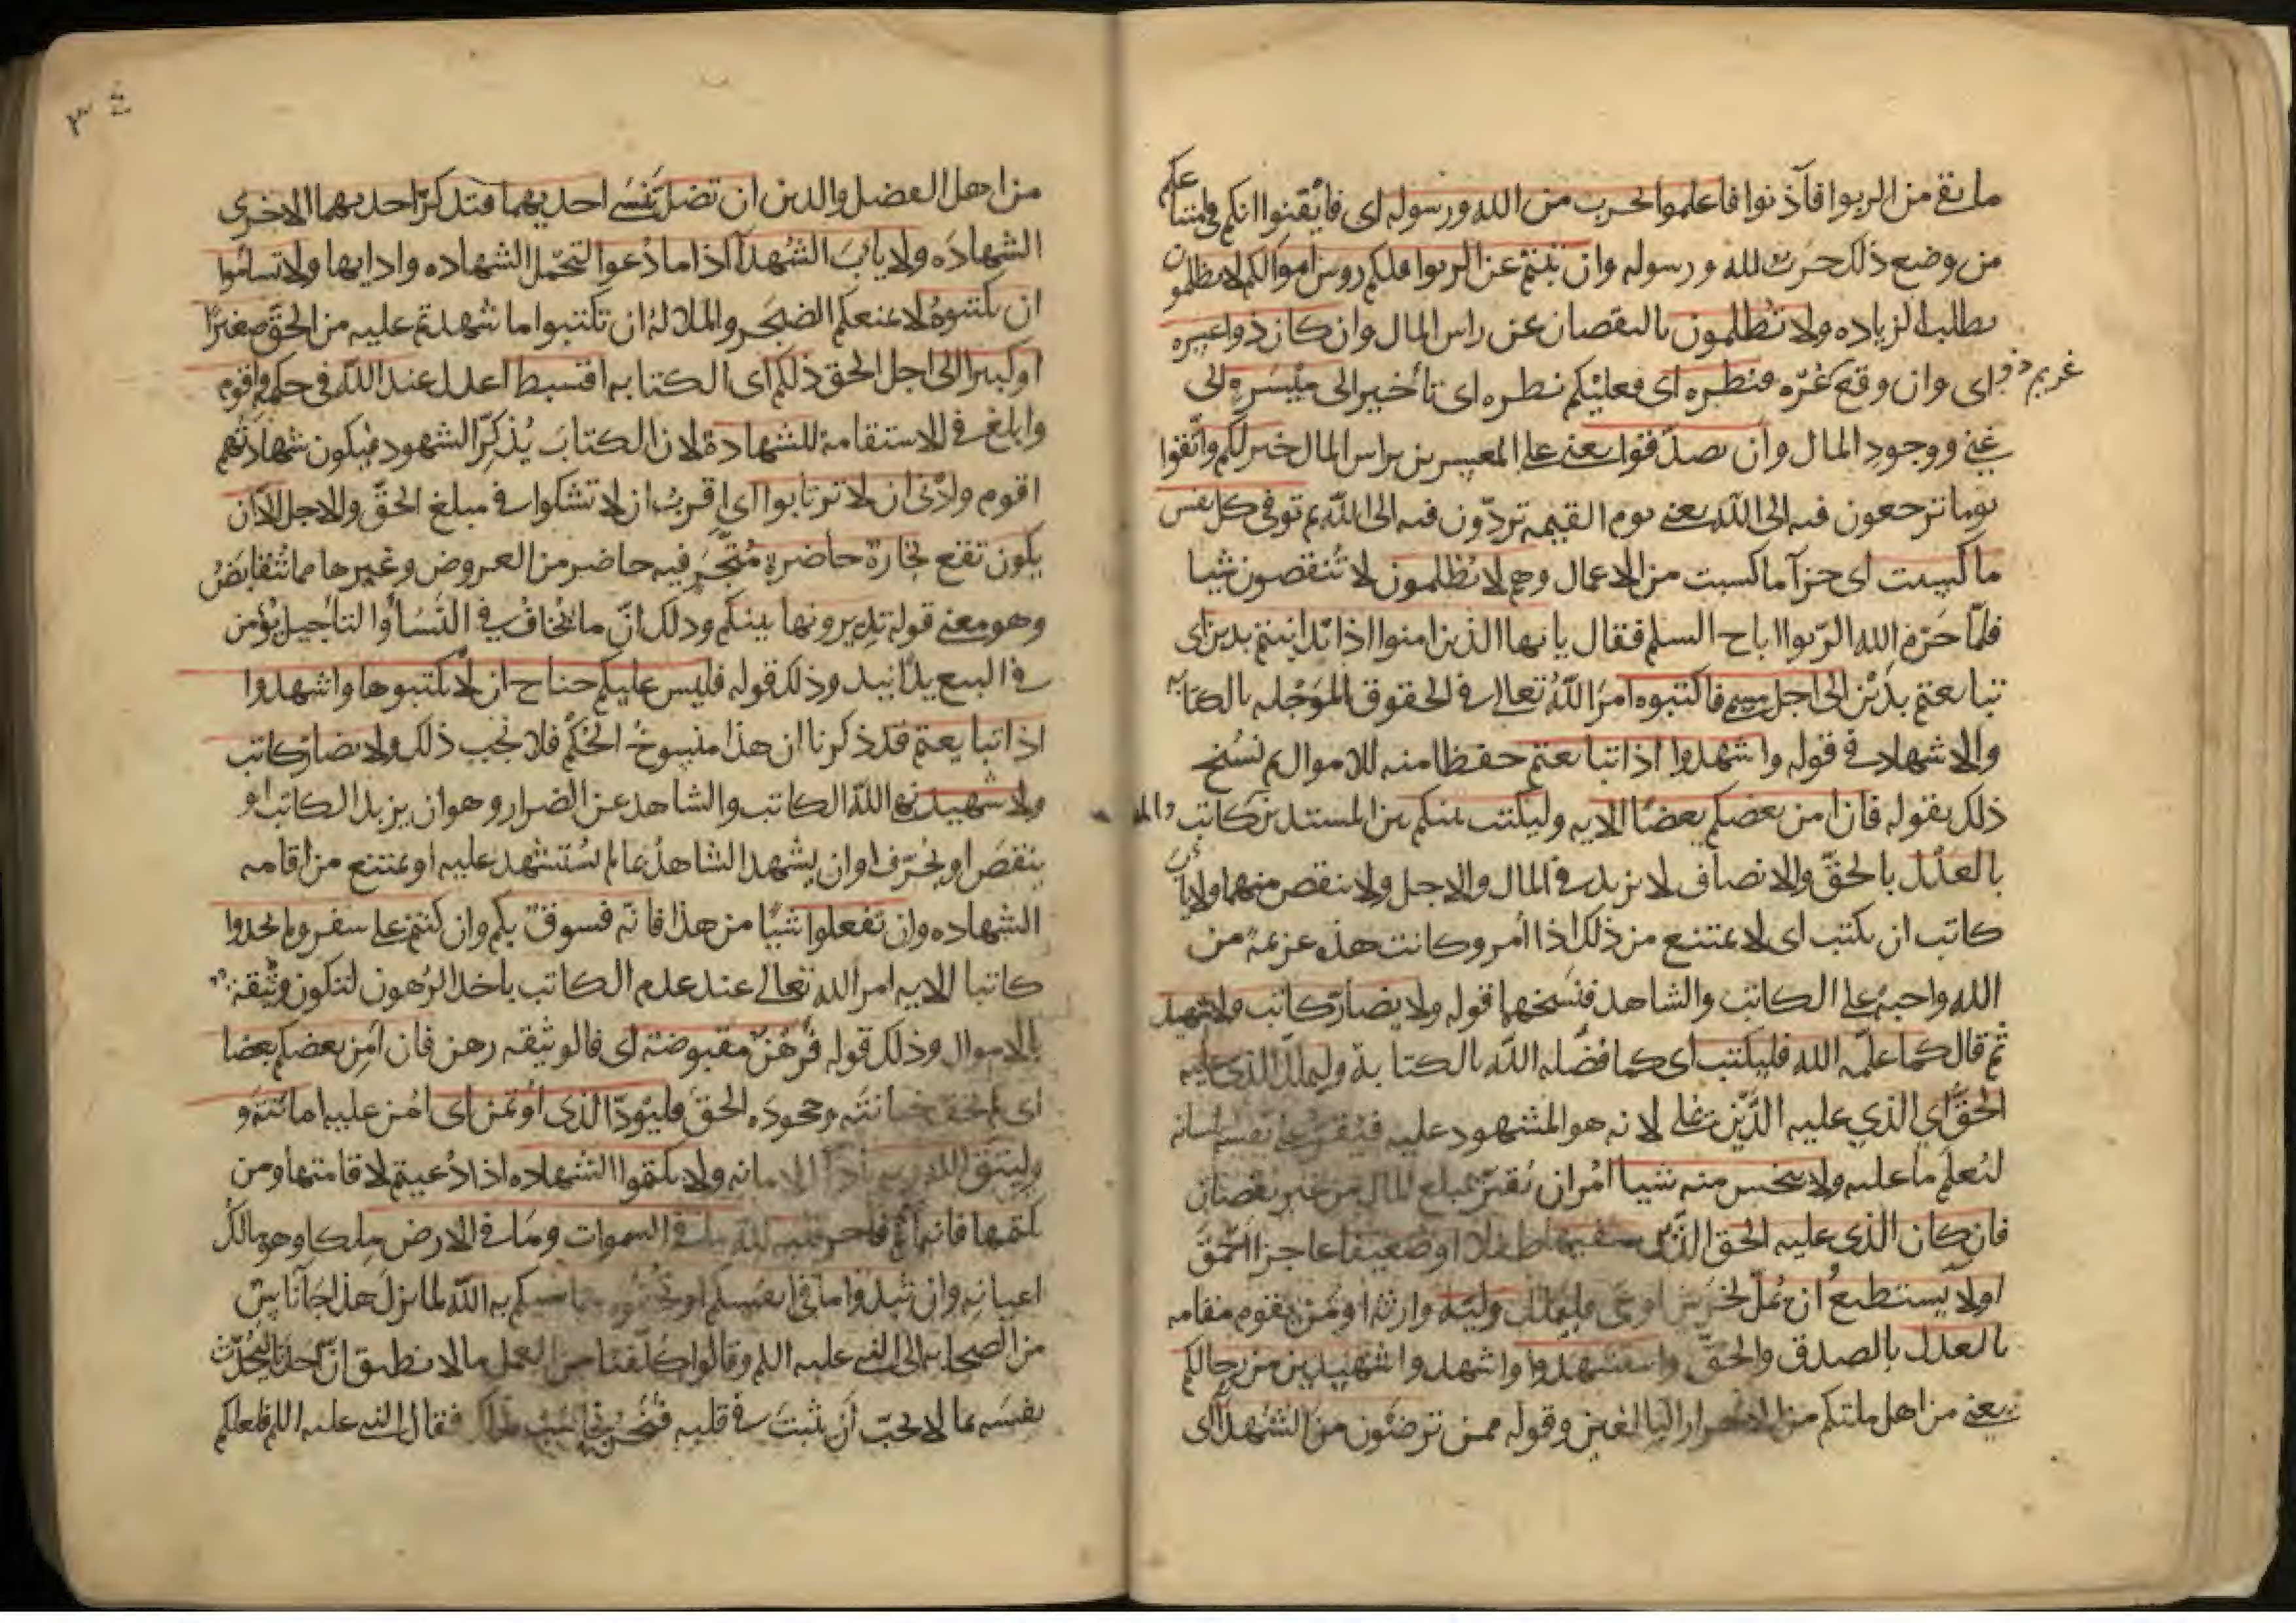 ما بقى من الربوا فآذنوا فاعلموا بحرب من الله ورسوله اى فايقنوا انكم فى امتناعكم
من وضع ذلك حرب لله ورسوله وان تبتم عن الربوا فلكم روس اموالكم لا تظلمون
بطلب الزياده ولا تظلمون بالنقصان عن راس المال وان كان ذو اعسره
غريم اى وان وقع غريم ذو عسره فنظره اى فعليكم نظره اى تأخير الى ميسره الى
غنى ووجود المال وان تصدقوا يعنى على المعسرين براس المال خير لكم واتقوا
يوما ترجعون فيه الى الله يعنى يوم القيمه تردّون فيه الى الله ثم توفى كل نفس
ما كسبت اى جزآ ما كسبت من الاعمال وهم لا يظلمون لا تنقصون شيا
فلمّا حرّم الله الرّبوا اباح السلم فقال يا ايها الذين امنوا اذا تداينتم بدين اى
تبايعتم بدَيْن الى اجل مسمى فاكتبوه امرَ اللهُ تعالى فى الحقوق الموَجّله بالكتابه
والاشهاد فى قوله واشهدوا اذا تبايعتم حفظا منه للاموال ثم نُسخ
ذلك بقوله فان امن بعضكم بعضًا الايه وليكتب بينكم بين المستدين كاتب
بالعَدْل بالحقّ والانصاف لا يزيد فى المال والاجل ولا ينقص منهما ولا ياب
كاتب ان يكتب اى لا يمتنع من ذلك اذا اُمر وكانت هذه عزيمة من
الله واجبة على الكاتب والشاهد فنسخها قوله ولا يضارّ كاتب ولا شهيد
ثم قال كما علّمه الله فليكتب اى كما فضّله الله بالكتابة وليملل الذى عليه
الحقّ اى الذى عليه الدَّيْن يملى لانه هو المشهود عليه فيُقرّ على نفسه بلسانه
ليُعلَم ما عليه ولا يبخس منه شيا اُمر ان يُقرّ بمبلغ المال من غير نقصان
فان كان الذى عليه الحق الدَّيْن سفيها طفلا او ضعيفا عاجزا احمَقَ
اولا يستطيع ان يُملّ لخرس او عىّ فليملل وليّه وارثه او مَن يقوم مقامه
بالعدل بالصدق والحقّ واستشهدوا واشهدوا شهيدين من رجالكم
يعنى من اهل ملتكم من الاحرار البالغين وقوله ممن ترضون من الشهدآ اى
٣٤
من اهل الفضل والدين ان تضل تنسى احديهما فتذكرّ احديهما الاخرى
الشهادَه ولا يابَ الشهدآ اذا ما دُعوا لتحمّل الشهاده وادايها ولا تسأموا
ان تكتبوهُ لا يمنعكم الضجر والملالة ان تكتبوا ما شهدتم عليه من الحقّ صغيرًا
او كبيرا الى اجل الحق ذلكم اى الكتابه اقسط اعدل عند الله فى حكمه واقوم
وابلغ فى الاستقامة للشهادة لان الكتابَ يُذكِّر الشهود فيكون شهادتهم
اقوم وادنى ان لا ترتابوا اى اقربُ ان لا تشكوا فى مبلغ الحقّ والاجل الآ ان
يكون تقع تجارة حاضرة مُتّجَر فيه حاضر من العروض وغيرها مما تُتقابَضُ
وهو معنى قوله تديرونها بينكم وذلك انّ ما يُخافُ فى النَّسَأ والتأجيل يُؤمن
فى البيع يدًا بيد وذلك قوله فليس عليكم جناح ان لا تكتبوها واشهدوا
اذا تبايعتم قد ذكرنا ان هذا منسوخُ الحُكم فلا يجب ذلك ولا يضارّ كاتب
ولا شهيد نهى الله الكاتب والشاهد عن الضرار وهو ان يزيد الكاتب او
ينقصَ او يُحرّف وان يشهد الشاهدُ بما لم يُستشهد عليه او يمتنع من اقامه
الشهاده وان تفعلوا شيًا من هذا فانه فسوق بكم وان كنتم على سفر ولم تجدوا
كاتبا الايه امر الله تعالى عند عدم الكاتب باخذ الرُهون لتكون وثيقة
بالاموال وذلك قوله فرُهُنٌ مقبوضة اى فالوثيقه رهن فان اَمِن بعضكم بعضا
اى لم يخف خيانتَه وجحودَه الحقّ فليؤدّ الذى اؤتمن اى اُمن عليه امانتَهَ و
وليتق الله ربه بأدآ الامانه ولا تكتموا الشهاده اذا دُعيتم لاقامتها ومن
يكتمها فانه آثم فاجر قلبه لله ما فى السموات وما فى الارض ملكا وهو مالك
اعيانه وان تبدوا ما فى انفسكم او تخفوه يحاسبكم به الله لما نزل هذا جآ ناس
من الصحابه الى النبى عليه السلم وقالوا كُلّفنا من العمل ما لا نطيق انّ احدنا ليُحدّث
نفسَه بما لا يحبّ أن يثبت فى قلبه فنحن نحاسب بذلك فقال النبى عليه السلم فلعلكم